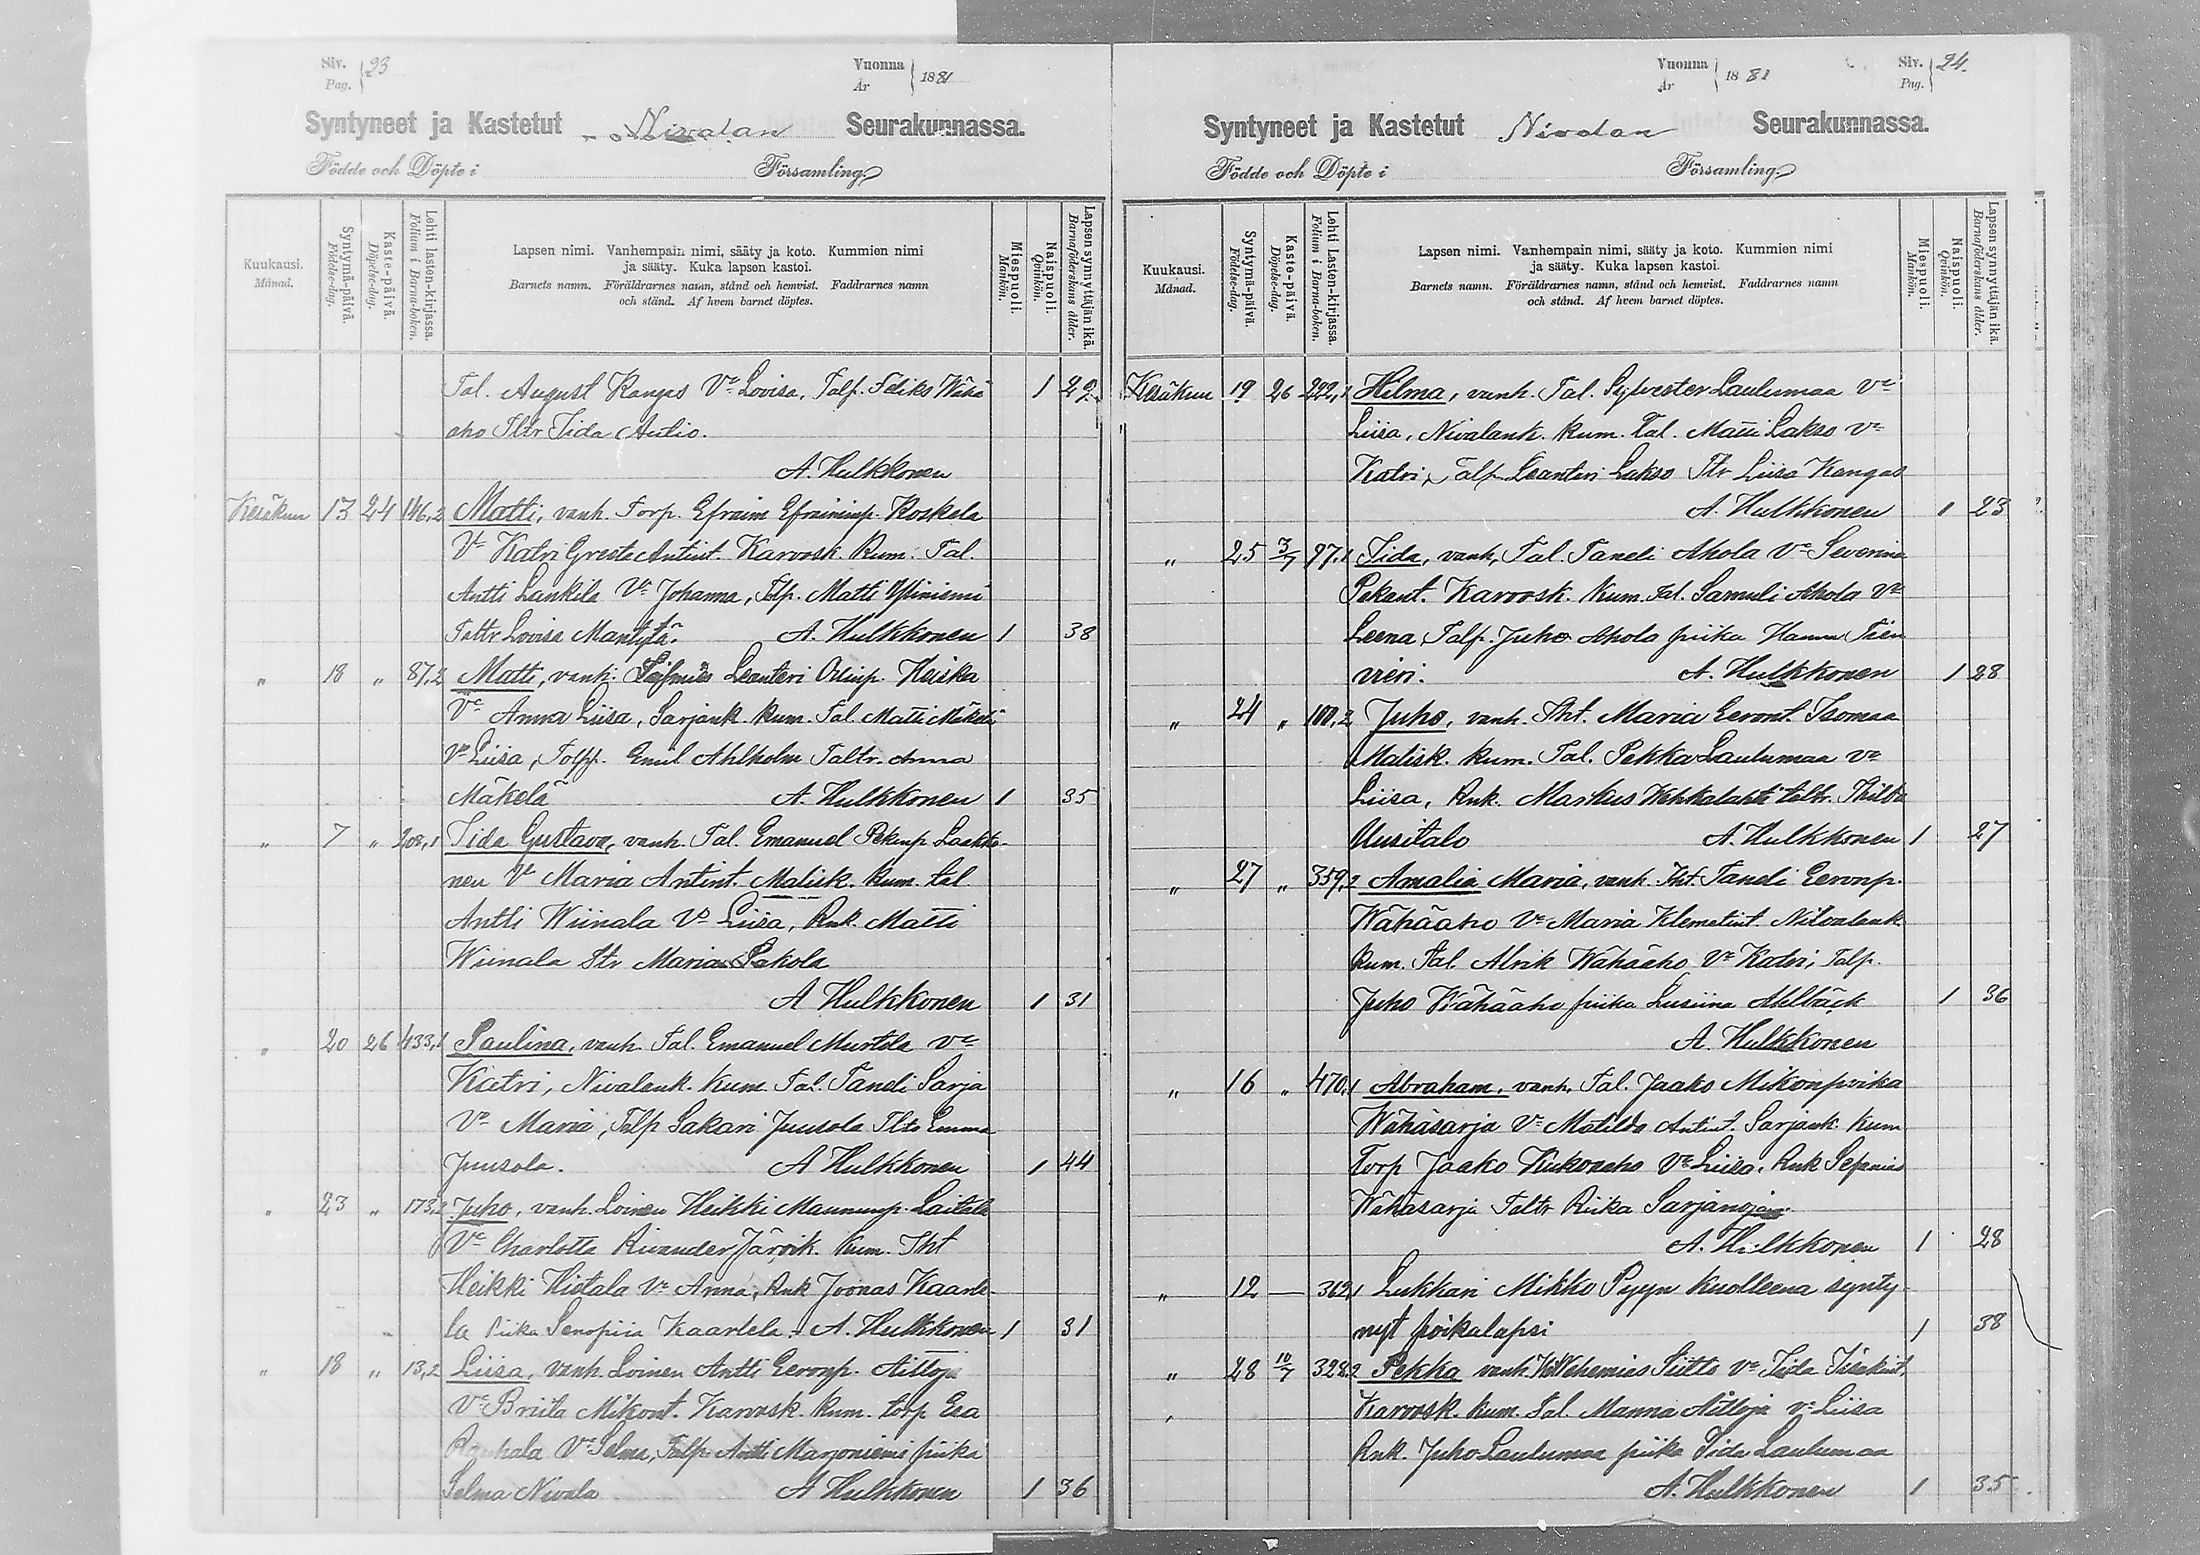 Siv. Pag. 23 Vuonna År 1881
Syntyneet ja Kastetut Nivalan Seurakunnassa.
Födde och Döpte i Församling
Kuukausi. Månad.
Syntymä-päivä. Födelse-dag.
Kaste-päivä. Döpelse-dag.
Lehti lasten-kirjassa. Folium i Barna-boken.
Lapsen nimi. Vanhempain nimi, sääty ja koto. Kummien nimi
ja sääty. Kuka lapsen kastoi.
Barnets namn. Föräldrarnes namn, stånd och hemvist. Faddrarnes namn
och stånd. Af hvem barnet döptes.
Miespuoli. Mankön.
Naispuoli. Qvinkön.
Lapsen synnyttäjän ikä. Barnaföderskans ålder.
Tal. August Kangas Vo Lovisa, Talp. Feliks Wähä 1 29
aho Tltr Iida Autio.
A. Hulkkonen
Kesäkuu 13 24 146,2 Matti, vanh. Torp. Efraim Efraiminp. Koskela
Vo Katri Greeta Antint. Karvosk. Kum. Tal.
Antti Lankila Vo Johanna, Tlp. Matti Yliniemi
Taltr Lovisa Mäntylä. A. Hulkkonen 1 38
" 18 " 87,2 Matti, vanh. Leanteri Keiska
Vo Anna Liisa, Sarjank. Kum. Tal. Matti Mäkelä
Vo Liisa, Talp. Emil Ahlholm Taltr. Anna
Mäkelä A. Hulkkonen 1 35
" 7 " 208,1 Iida Gustava, vanh. Tal. Emanuel Pekanp. Laakko-
nen Vo Maria Antint. Malisk. Kum. tal
Antti Wiinala Vo Liisa, Rnk. Matti
Wiinala Itr Maria Pakola
A Hulkkonen 1 31
" 20 26 433,1 Paulina, vanh. Tal. Emanuel Murtola Vo
Katri, Nivalank. Kum. Tal. Taneli Sarja
Vo Maria, Talp Sakari Juusola Tltr Emma
Juusola. A Hulkkonen 1 44
" 23 " 173,2 Juho, vanh. Loinen Heikki Maununp. Laitala
Vo Charlotta Järvik. Kum. Tht
Heikki Hietala Vo Anna, Rnk Joonas Kaarle-
la Piika Serafiia Kaarlela. A. Hulkkonen 1 31
" 18 " 13,2 Liisa, vanh. Loinen Antti Eeronp. Aittoja
Vo Briita Mikont. Karvosk. Kum. torp Esa
Rauhala Vo Selma, Talp Antti Marjoniemi piika
Selma Nivala A Hulkkonen 1 36
Vuonna År 1881 Siv. Pag. 24.
Syntyneet ja Kastetut Nivalan Seurakunnassa.
Födde och Döpte i Församling
Kuukausi. Månad.
Syntymä-päivä. Födelse-dag.
Kaste-päivä. Döpelse-dag.
Lehti Lasten-kirjassa. Folium i Barna-boken.
Lapsen nimi. Vanhempain nimi, sääty ja koto. Kummien nimi
ja sääty. Kuka lapsen kastoi.
Barnets namn. Föräldrarnes namn, stånd och hemvist. Faddrarnes namn
och stånd. Af hvem barnet döptes.
Miespuoli. Mankön.
Naispuoli. Qvinkön.
Lapsen synnyttäjän ikä. Barnaföderskans ålder.
Kesäkuu 19 26 222,1 Hilma, vanh. Tal. Sylvester Laulumaa Vo
Liisa, Nivalank. Kum. Tal. Matti Lakso Vo
Katri, Talp Leanteri Lakso Itr Liisa Kangas
A. Hulkkonen 1 23
" 25 3/7 97,1 Iida, vanh, Tal. Taneli Ahola Vo Severina
Pekant. Karvosk. Kum. Tal. Samuli Ahola Vo
Leena, Talp. Juho Ahola piika Hanna Tien
vieri. A. Hulkkonen 1 28
" 24 " 100,2 Juho, vanh. Tht. Maria Eeront. Isomaa
Malisk. Kum. Tal. Pekka Laulumaa Vo
Liisa, Rnk. Markus Kehkalahti taltr. Thilda
Uusitalo A. Hulkkonen 1 27
" 27 " 359,2 Amalia Maria, vanh. Tht. Taneli Eeronp.
Wähäaho Vo Maria Klemetint. Nivalank.
Kum. Tal Alrik Wähäaho Vo Katri, Talp.
Juho Wähäaho piika Lusiina Ahlbäck 1 36
A. Hulkkonen
" 16 " 470,1 Abraham, vanh. Tal. Jaako Mikonpoika
Wähäsarja Vo Matilda Antint. Sarjank. Kum
Torp Jaako Kukonaho Vo Liisa, Rnk Sefanias
Wähäsarja Taltr Riika Sarjanoja.
A. Hulkkonen 1 28
" 12 — 362,1 Lukkari Mikko Pyyn kuolleena synty
nyt poikalapsi 1 38
" 28 10/7 328,2 Pekka vanh. Nehemias Siitto Vo Iida Iisakint,
Karvosk. Kum. Tal. Manna Aittoja Vo Liisa
Rnk. Juho Laulumaa piika Iida Laulumaa
A. Hulkkonen 1 35